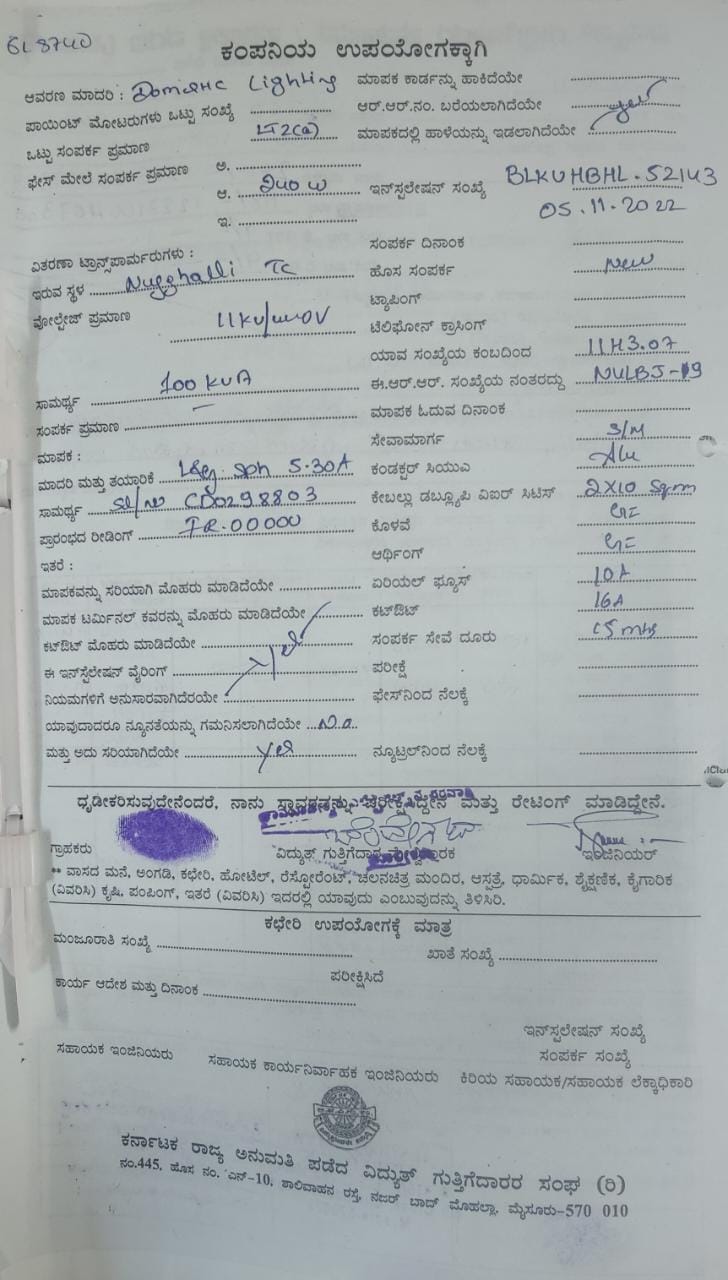 GL 8740
ಕಂಪನಿಯ ಉಪಯೋಗಕ್ಕಾಗಿ
ಆವರಣ ಮಾದರಿ : Domestic Lighting ಮಾಪಕ ಕಾರ್ಡನ್ನು ಹಾಕಿದೆಯೇ
ಪಾಯಿಂಟ್ ಮೋಟರುಗಳು ಒಟ್ಟು ಸಂಖ್ಯೆ ಆರ್.ಆರ್.ನಂ. ಬರೆಯಲಾಗಿದೆಯೇ yes
ಒಟ್ಟು ಸಂಪರ್ಕ ಪ್ರಮಾಣ LT2(a) ಮಾಪಕದಲ್ಲಿ ಹಾಳೆಯನ್ನು ಇಡಲಾಗಿದೆಯೇ
ಫೇಸ್ ಮೇಲೆ ಸಂಪರ್ಕ ಪ್ರಮಾಣ ಅ.
ಆ. 240 W ಇನ್‌ಸ್ಟಲೇಷನ್ ಸಂಖ್ಯೆ BLKUHBHL.52143
ಇ. 05.11.2022
ವಿತರಣಾ ಟ್ರಾನ್ಸ್‌ಪಾರ್ಮರುಗಳು : ಸಂಪರ್ಕ ದಿನಾಂಕ
ಇರುವ ಸ್ಥಳ Nugghalli TC ಹೊಸ ಸಂಪರ್ಕ New
ಟ್ಯಾಪಿಂಗ್
ವೋಲ್ಟೇಜ್ ಪ್ರಮಾಣ 11KV/440V ಟೆಲಿಫೋನ್ ಕ್ರಾಸಿಂಗ್
ಯಾವ ಸಂಖ್ಯೆಯ ಕಂಬದಿಂದ 11H3.07
ಸಾಮರ್ಥ್ಯ 100 KVA ಈ.ಆರ್.ಆರ್. ಸಂಖ್ಯೆಯ ನಂತರದ್ದು NULBJ-19
ಸಂಪರ್ಕ ಪ್ರಮಾಣ — ಮಾಪಕ ಓದುವ ದಿನಾಂಕ
ಮಾಪಕ : ಸೇವಾಮಾರ್ಗ S/M
ಮಾದರಿ ಮತ್ತು ತಯಾರಿಕೆ L&g. Sph 5-30A ಕಂಡಕ್ಟರ್ ಸಿಯುಎ Alu
ಸಾಮರ್ಥ್ಯ Sl/no CD0298803 ಕೇಬಲ್ಲು ಡಬ್ಲ್ಯೂಪಿ ವಿಐರ್ ಸಿಟಿಸ್ 2X10 Sqmm
ಪ್ರಾರಂಭದ ರೀಡಿಂಗ್ IR.00000 ಕೊಳವೆ GI
ಇತರೆ : ಆರ್ಥಿಂಗ್ GI
ಮಾಪಕವನ್ನು ಸರಿಯಾಗಿ ಮೊಹರು ಮಾಡಿದೆಯೇ ಏರಿಯಲ್ ಫ್ಯೂಸ್ 10A
ಮಾಪಕ ಟರ್ಮಿನಲ್ ಕವರನ್ನು ಮೊಹರು ಮಾಡಿದೆಯೇ ಕಟ್‌ಔಟ್ 16A
ಕಟ್‌ಔಟ್ ಮೊಹರು ಮಾಡಿದೆಯೇ ಸಂಪರ್ಕ ಸೇವೆ ದೂರು 15 mts
ಈ ಇನ್‌ಸ್ಟಲೇಷನ್ ವೈರಿಂಗ್ yes ಪರೀಕ್ಷೆ
ನಿಯಮಗಳಿಗೆ ಅನುಸಾರವಾಗಿದೆರಯೇ ಫೇಸ್‌ನಿಂದ ನೆಲಕ್ಕೆ
ಯಾವುದಾದರೂ ನ್ಯೂನತೆಯನ್ನು ಗಮನಿಸಲಾಗಿದೆಯೇ
ಮತ್ತು ಅದು ಸರಿಯಾಗಿದೆಯೇ yes ನ್ಯೂಟ್ರಲ್‌ನಿಂದ ನೆಲಕ್ಕೆ
ಧೃಡೀಕರಿಸುವುದೇನೆಂದರೆ, ನಾನು ಸ್ಥಾವರವನ್ನು ಪರೀಕ್ಷಿಸಿದ್ದೇನೆ ಮತ್ತು ರೇಟಿಂಗ್ ಮಾಡಿದ್ದೇನೆ.
ಗ್ರಾಹಕರು ವಿದ್ಯುತ್ ಗುತ್ತಿಗೆದಾರ ಇಂಜಿನಿಯರ್
** ವಾಸದ ಮನೆ, ಅಂಗಡಿ, ಕಛೇರಿ, ಹೋಟೆಲ್, ರೆಸ್ಟೋರೆಂಟ್, ಚಲನಚಿತ್ರ ಮಂದಿರ, ಆಸ್ಪತ್ರೆ, ಧಾರ್ಮಿಕ, ಶೈಕ್ಷಣಿಕ, ಕೈಗಾರಿಕ
(ವಿವರಿಸಿ) ಕೃಷಿ, ಪಂಪಿಂಗ್, ಇತರೆ (ವಿವರಿಸಿ) ಇದರಲ್ಲಿ ಯಾವುದು ಎಂಬುವುದನ್ನು ತಿಳಿಸಿರಿ.
ಕಛೇರಿ ಉಪಯೋಗಕ್ಕೆ ಮಾತ್ರ
ಮಂಜೂರಾತಿ ಸಂಖ್ಯೆ ಖಾತೆ ಸಂಖ್ಯೆ
ಪರೀಕ್ಷಿಸಿದೆ
ಕಾರ್ಯ ಆದೇಶ ಮತ್ತು ದಿನಾಂಕ
ಇನ್‌ಸ್ಟಲೇಷನ್ ಸಂಖ್ಯೆ
ಸಂಪರ್ಕ ಸಂಖ್ಯೆ
ಸಹಾಯಕ ಇಂಜಿನಿಯರು ಸಹಾಯಕ ಕಾರ್ಯನಿರ್ವಾಹಕ ಇಂಜಿನಿಯರು ಕಿರಿಯ ಸಹಾಯಕ/ಸಹಾಯಕ ಲೆಕ್ಕಾಧಿಕಾರಿ
ಕರ್ನಾಟಕ ರಾಜ್ಯ ಅನುಮತಿ ಪಡೆದ ವಿದ್ಯುತ್ ಗುತ್ತಿಗೆದಾರರ ಸಂಘ (ರಿ)
ನಂ.445, ಹೊಸ ನಂ. ಎನ್-10, ಶಾಲಿವಾಹನ ರಸ್ತೆ, ನಜರ್ ಬಾದ್ ಮೊಹಲ್ಲಾ, ಮೈಸೂರು-570 010